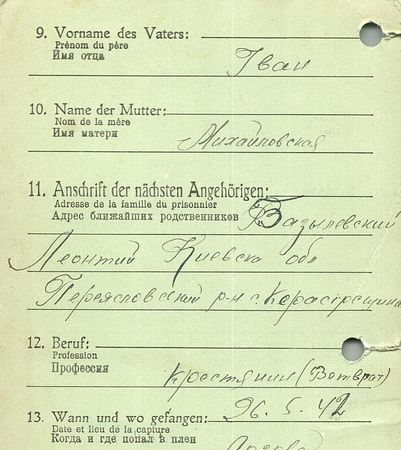 9. Vorname des Vaters:
Prénom du père
Имя отца
Іван
10. Name der Mutter:
Nom de la mère
Имя матери
Михайловская
11. Anschrift der nächsten Angehörigen:
Adresse de la famille du prisonnier
Адрес ближайших родственников
Базылевский
Леонтий Киевска обл
р-н с.
12. Beruf:
Profession
Профессия
Крестянин (Ветврат)
13. Wann und wo gefangen:
26.5.42
Date et lieu de la capture
Когда и где попал в плен